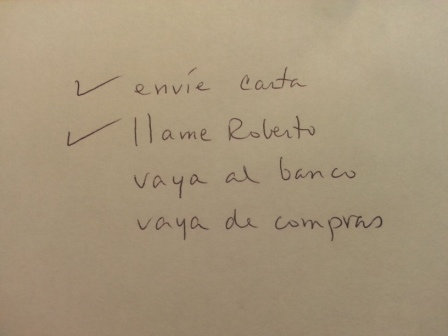 ✓ envíe carta
✓ llame Roberto
vaya al banco
vaya de compras